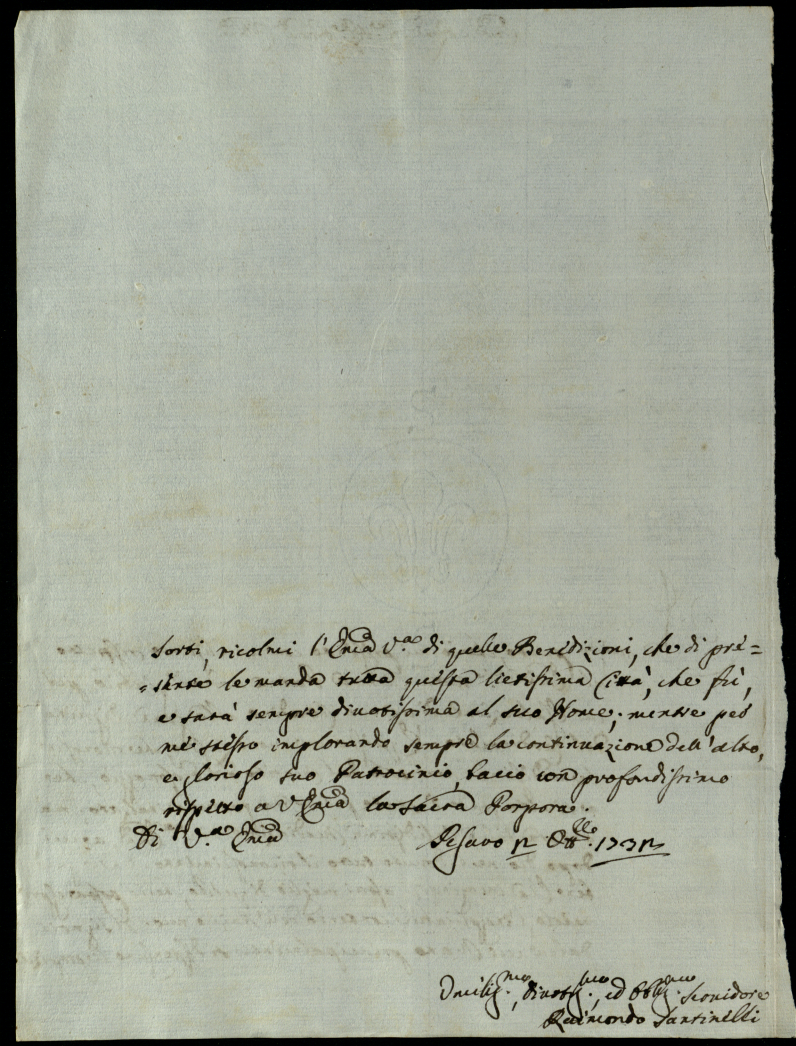 sorti, ricolmi l'Em.za V.ra di quelle Benedizioni, che di pre=
=sente le manda tutta questa lietissima Città, che fù,
e sarà sempre divotissima al suo Nome; mentre per
me stesso implorando sempre la continuazione dell'alto,
e glorioso suo Patrocinio, bacio con profondissimo
rispetto a V. Em.za la Sacra Porpora.
Di V.ra Em.za Pesaro 12 Ott.bre 1732
Umilis.mo, Divotis.mo, ed Obblig.mo Servidore
Raimondo Santinelli